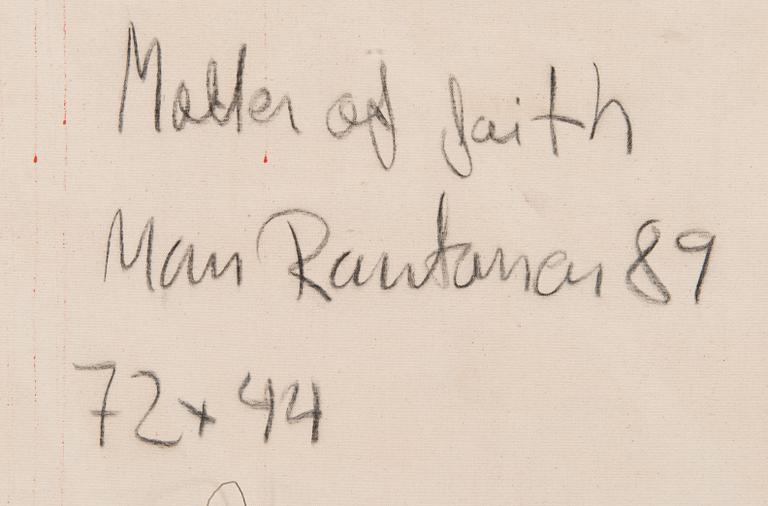 Matter of faith
Mari Rantanen 89
72x44